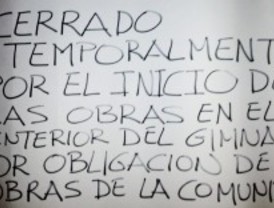 CERRADO
TEMPORALMENT
POR EL INICIO D
LAS OBRAS EN EL
INTERIOR DEL GIMNA
OR OBLIGACION DE
OBRAS DE LA COMUNI